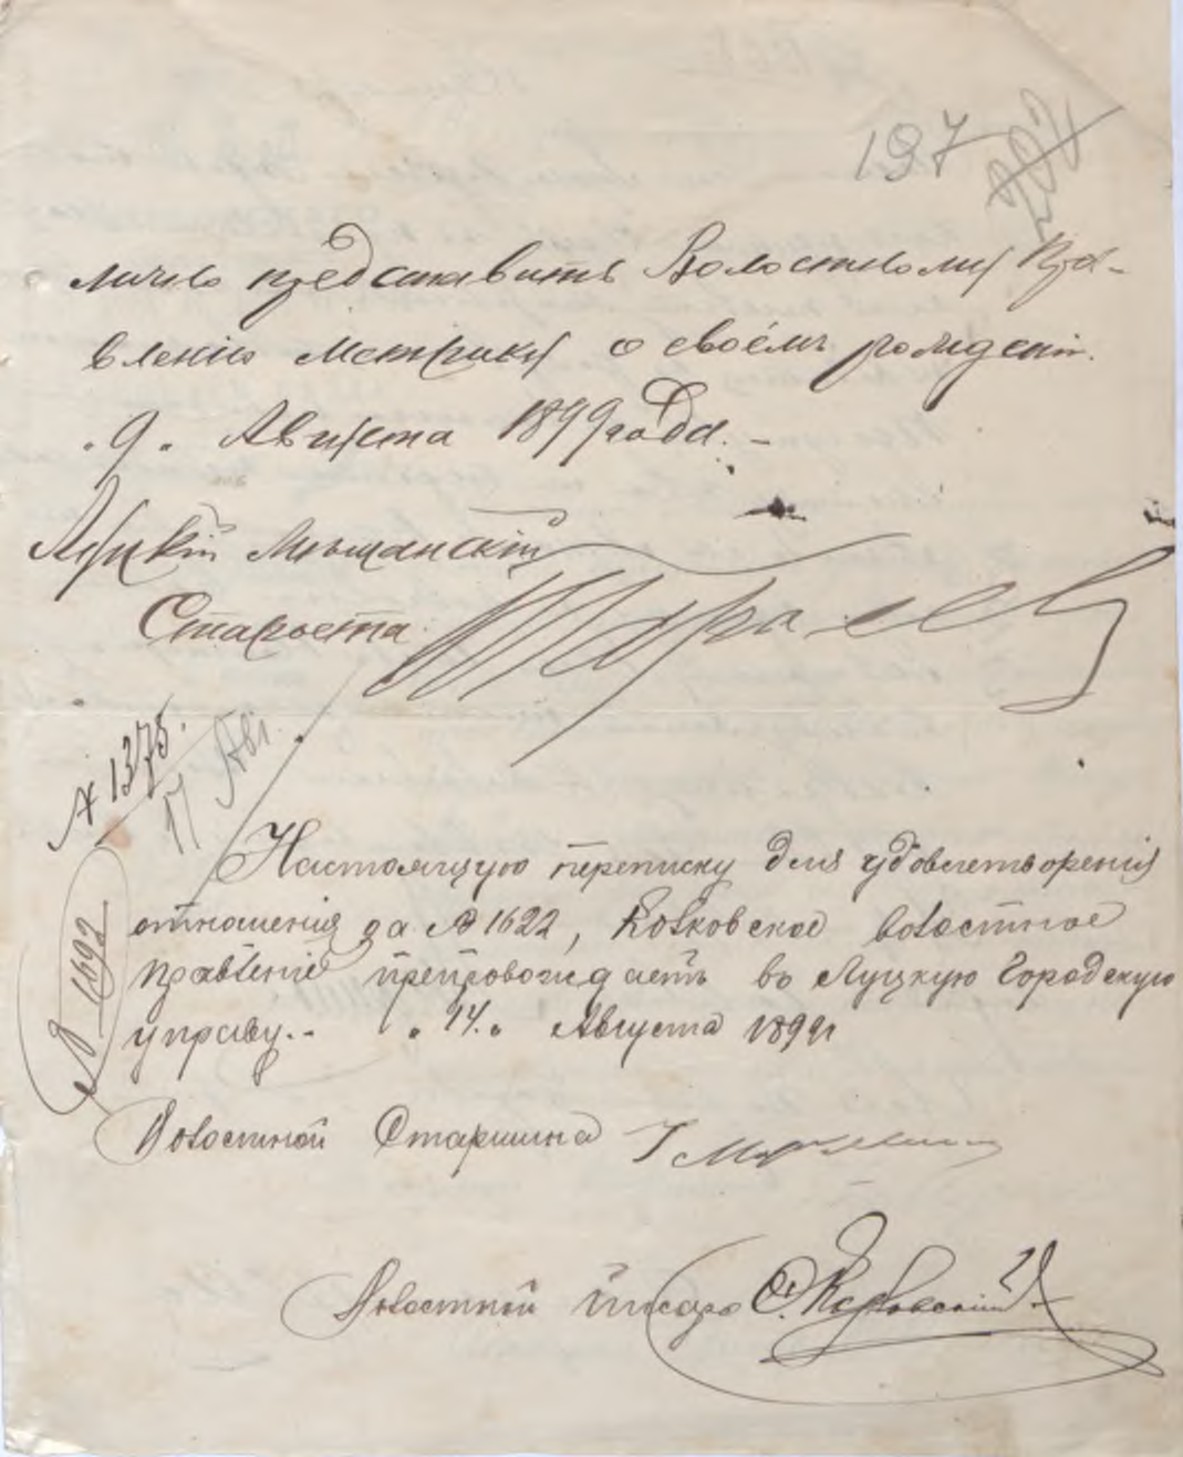 197
202
лично представить Волостному Пра-
вленію Метрику о своемъ рожденіи.
„9„ Августа 1899 года. -
Луцкій Мѣщанскій
Староста
№ 1375.
17 Авг.
Настоящую переписку для удовлетворенія
отношенія за № 1622, Колковское волостное
правленіе препровождаетъ въ Луцкую Городскую
управу.- „14.„ Августа 1899 г
№ 1692
Волостной Старшина
Волостной Писарь